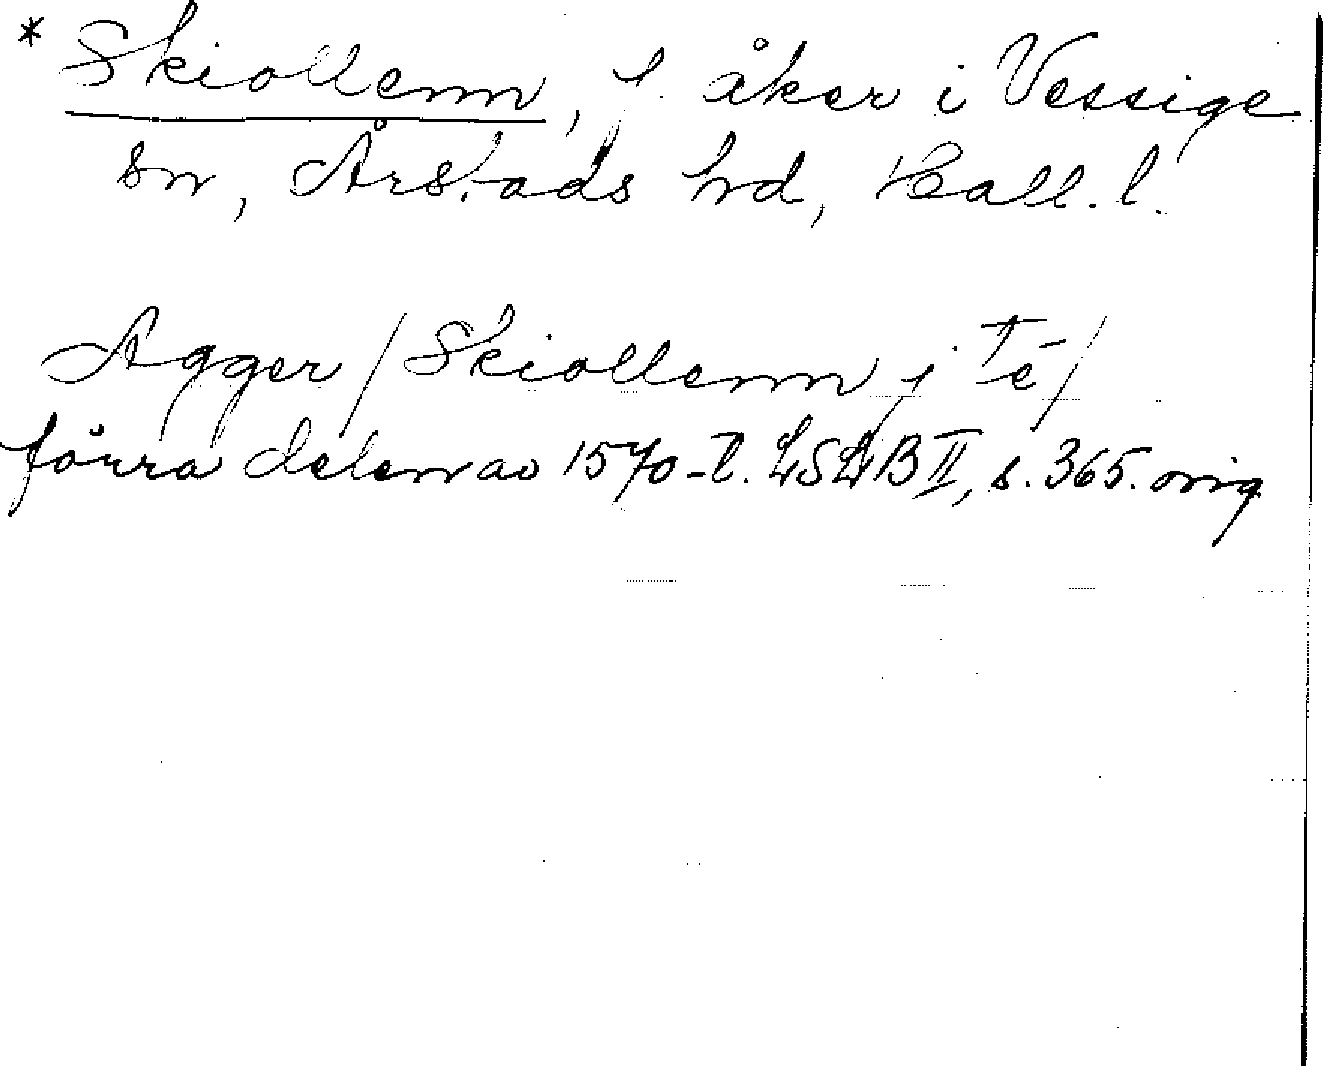 * Skiollenn, f. åker i Vessige
sn, Årstads hd, Hall. l.
Agger / Skiollenn j Te /
förra delen av 1570-t. LSLB II, s. 365. orig